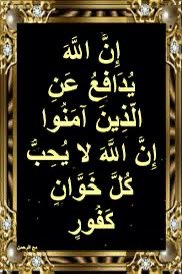 إِنَّ اللَّهَ
يُدَافِعُ عَنِ
الَّذِينَ آمَنُوا
إِنَّ اللَّهَ لا يُحِبُّ
كُلَّ خَوَّانٍ
كَفُورٍ
مع الرحمن